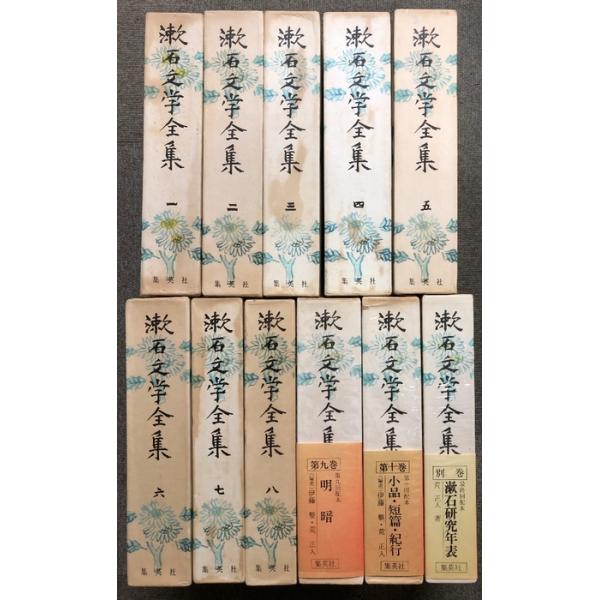 漱石文学全集
一
集英社
漱石文学全集
二
集英社
漱石文学全集
三
集英社
漱石文学全集
四
集英社
漱石文学全集
五
集英社
漱石文学全集
六
集英社
漱石文学全集
七
集英社
漱石文学全集
八
集英社
漱石文学全集
第九巻
第九回配本
明暗
〈編者〉伊藤 整・荒 正人
集英社
漱石文学全集
第十巻
第十回配本
小品・短篇・紀行
〈編者〉伊藤 整・荒 正人
集英社
漱石文学全集
別巻
最終回配本
漱石研究年表
荒 正人 著
集英社